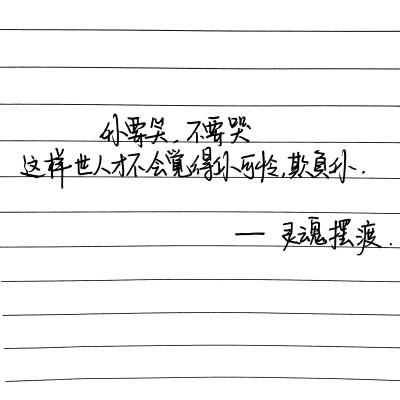 你要笑，不要哭
这样世人才不会觉得你可怜，欺负你.
— 灵魂摆渡.